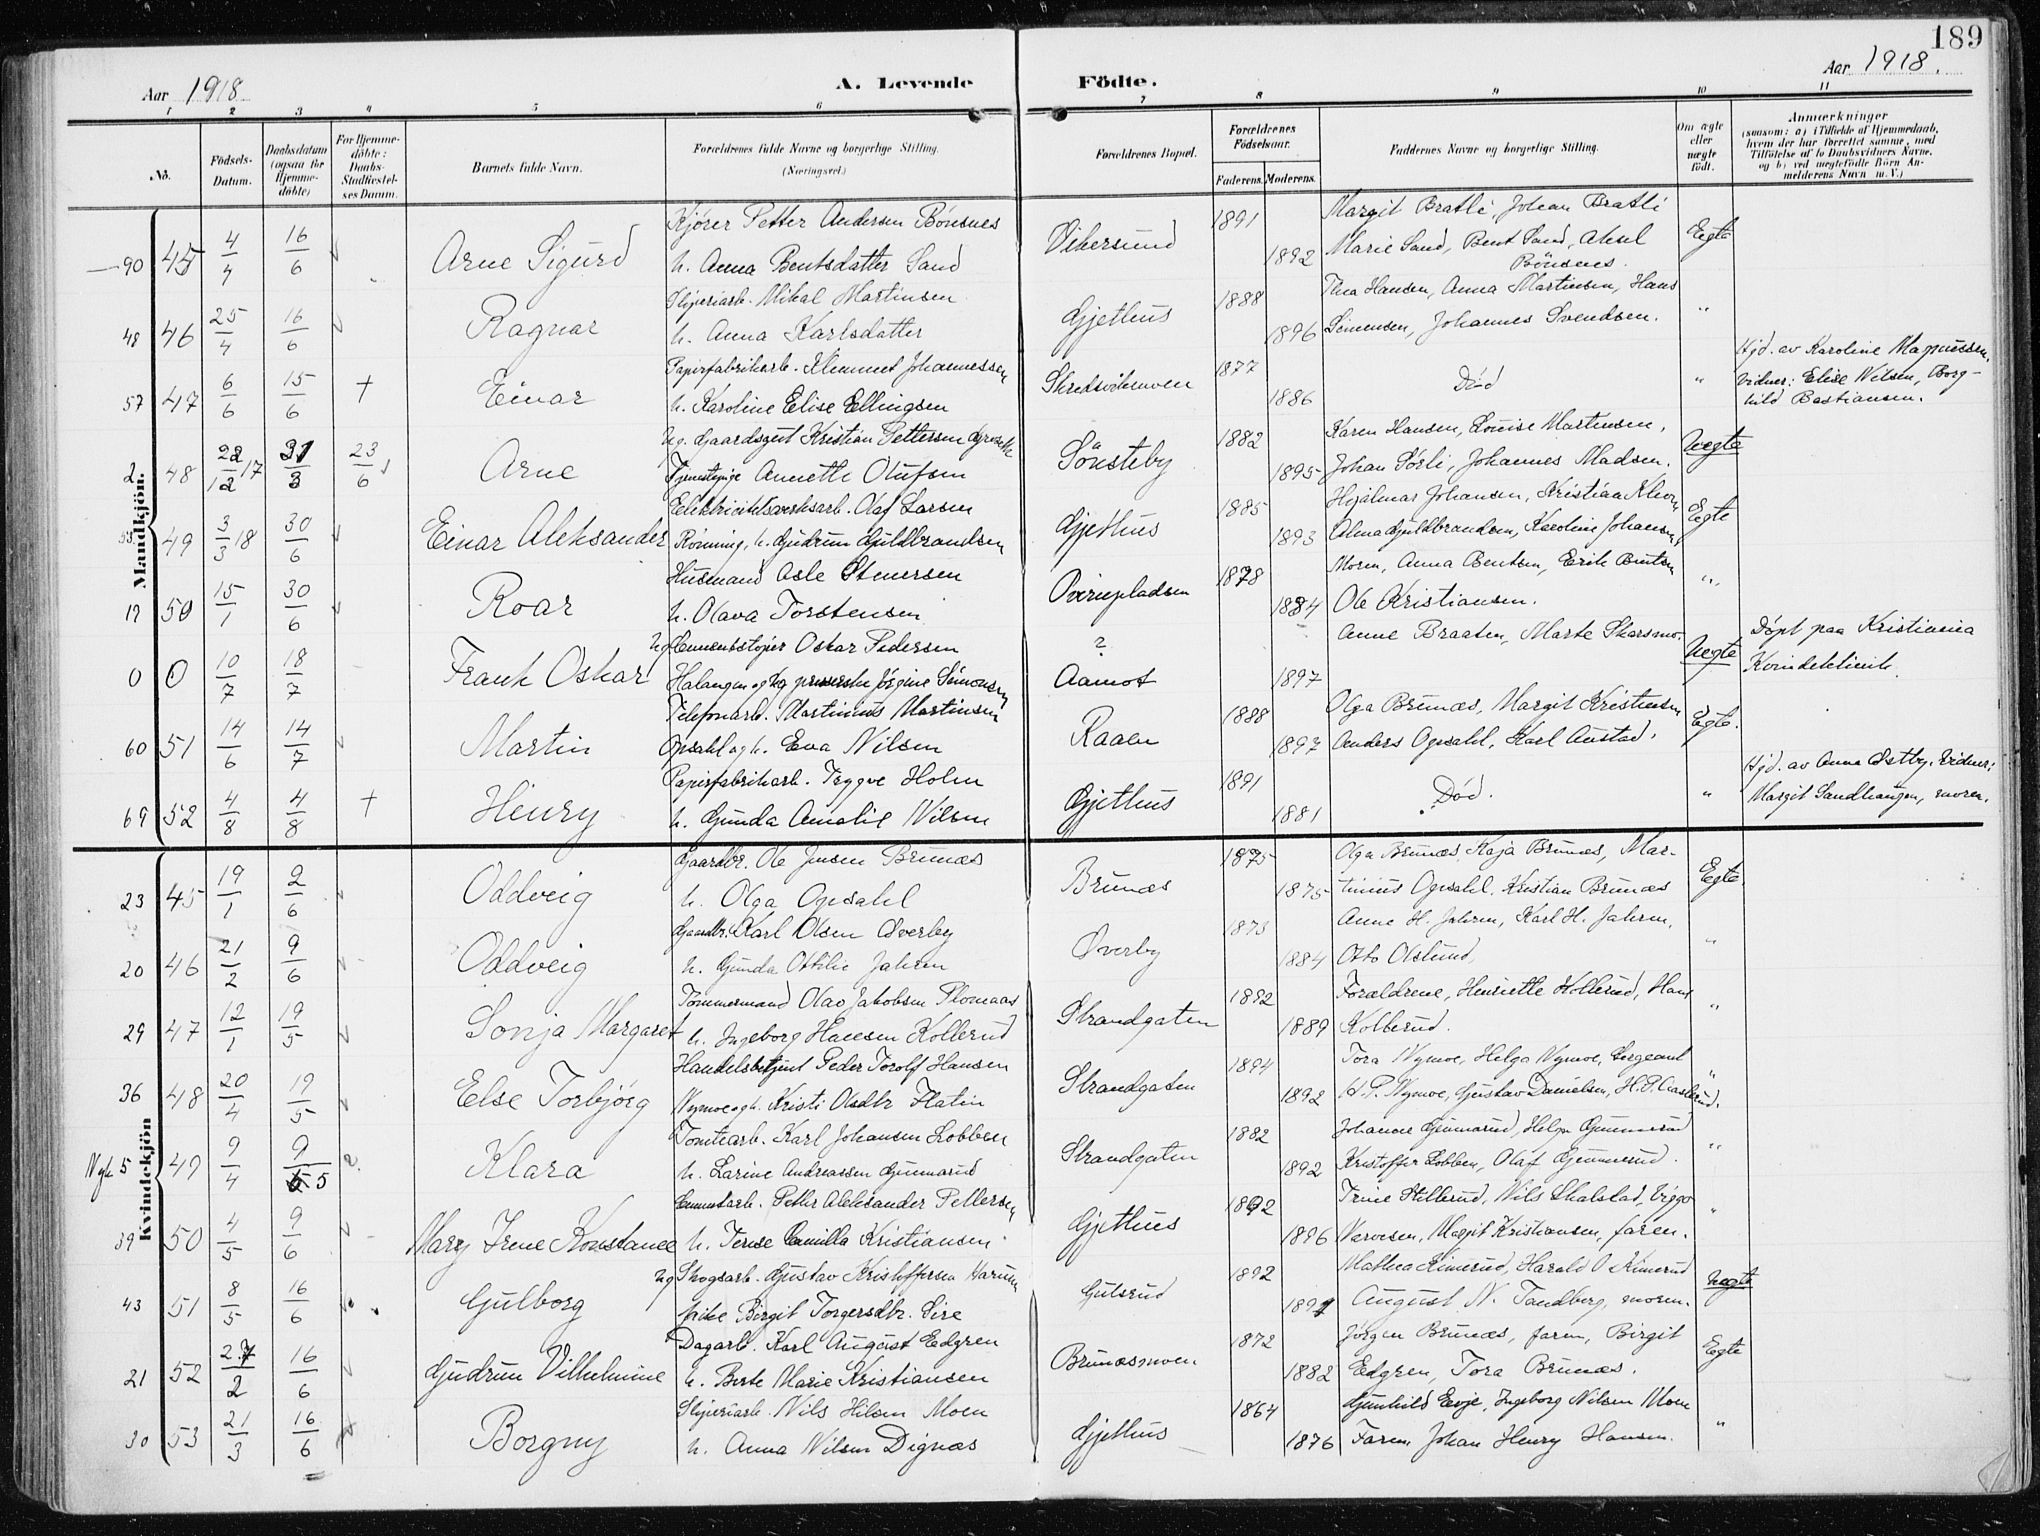 189
Aar 1918
A. Levende Födte.
Aar 1918.
1 2 3 4 5 6 7 8 9 10 11
No.
Födsels-Datum.
Daabsdatum (ogsaa for Hjemme-döbte)
For Hjemme-döbte: Daabs-Stadfæstel-ses Datum.
Barnets fulde Navn.
Forældrenes fulde Navne og borgerlige Stilling.
(Næringsvei.)
Forældrenes Bopæl.
Forældrenes Födselsaar.
Faderens. Moderens.
Faddernes Navne og borgerlige Stilling.
Om ægte eller uægte födt.
Anmærkninger
(saasom: a) i Tilfælde af Hjemmedaab, hvem der har forrettet samme, med Tilföielse af to Daabsvidners Navne, og b) ved uægtefödte Börn An-melderens Navn m. V.)
Mandkjön.
90 45 4/4 16/6 Arne Sigurd
Kjører Petter Andersen Bönsnes
h. Anna Bentsdatter Sand
Vikersund 1891 1892
Margit Bratli, Johan Bratli
Marie Sand, Bent Sand, Aksel
Bönsnes.
Egte
48 46 25/4 16/6 Ragnar
Sliperiarb. Mikal Martinsen
h. Anna Karlsdatter
Gjethus 1888 1896
Thea Hansen, Anna Martinsen, Hans
Simensen, Johannes Svendsen.
"
57 47 6/6 15/6 + Einar
Papirfabrikarb. Klemmet Johannessen
h. Karoline Elise Ellingsen
Skredsvikmoen 1877 1886
Död
"
Hjd. av Karoline Magnussen,
Vidner: Elise Nilsen, Borg-
hild Bastiansen.
2 48 22/12 17 31/3 23/6 Arne
Ug. Gaardsgut Kristian Pettersen
Tjenestepige Annette Olufsen
Sönsteby 1882 1895
Karen Hansen, Louise Martinsen,
Johan Sörli, Johannes Madsen.
Uegte
49 3/3 18 30/6 Einar Aleksander
Elektricitetsverksarb. Olaf Larsen
Rönning, h. Gudrun Guldbrandsen
Gjethus 1885 1893
Hjalmar Johansen, Kristian
Alma Guldbrandsen, Karoline Johansen,
Egte
17 50 15/1 30/6 Roar
Husmand Asle Stenersen
h. Olava Torstensen
1878 1884
Moren, Anna Bentsen, Erik Bentsen
Ole Kristiansen.
"
0 0 10/7 18/7 Frank Oskar
Ug Cementstøper Oskar Pedersen
Halangen og Ug Jörgine Simonsen
?
Aamot 1897
Anne Braaten, Marte Skarsmo.
Uegte
Döpt paa Kristiania
Kvindeklinik.
60 51 14/6 14/7 Martin
Telefonarb. Martinius Martinsen
Opsahl og h. Eva Nilsen
Raaen 1888 1897
Olga Brunæs, Margit Kristiansen
Anders Opsahl, Karl Austad.
Egte.
69 52 4/8 4/8 + Henry
Papirfabrikarb. Trygve Holm
h. Gunda Amalie Nilsen
Gjethus 1891 1881
Död.
"
Hjd. av Anna Østby. Vidner:
Margit Sandhaugen, moren.
Kvindekjön
23 45 19/1 2/6 Oddveig
Gaardbr. Ole Jensen Brunæs
h. Olga Opsahl
Brunæs 1875 1875
Olga Brunæs, Kaja Brunæs, Mar-
tinius Opsahl, Kristian Brunæs
Egte.
20 46 21/2 9/6 Oddveig
Gaardbr. Karl Olsen Øverby
h. Gunda Ottilie Jahren
Øverby 1873 1884
Anne H. Jahren, Karl H. Jahren,
Otto Olslund,
"
29 47 12/1 19/5 Sonja Margaret
Tømmermand Olav Jakobsen Plomaas
h. Ingeborg Hansen Kollerud
Strandgaten 1892 1889
Forældrene, Henriette Kollerud, Hans
Kollerud.
"
36 48 20/4 19/5 Else Torbjörg
Handelsbetjent Peder Torolf Hansen
Nymoe og h. Kristi Olsdtr Flatin
Strandgaten 1894 1892
Tora Nymoe, Helga Nymoe, Sergeant
H. P. Nymoe, Gustav Danielsen, H. P. Aaslerud.
"
5 49 9/4 9/5 5 Klara
Tomtearb. Karl Johansen Lobben
h. Larine Andreassen Gunnarud
Strandgaten 1882 1892
Johanne Gunnarud, Helga Gunnerud
Kristoffer Lobben, Olaf Gunnerud.
"
39 50 4/5 9/6 Mary Irene Konstance
Cementarb. Petter Aleksander Pettersen
h. Terese Camilla Kristiansen
Gjethus 1892 1896
Trine Hillerud, Nils Skalstad, Viggo
Varvesen, Margit Kristiansen, faren.
"
43 51 8/5 16/6 Gulborg
Ug Skogsarb. Gustav Kristoffersen
pike Birgit Torgersdtr. Lire
Gulsrud 1892
Mathea Kimerud, Harald O Kimerud
August N. Tandberg, moren.
Uegte
21 52 27/2 16/6 Gudrun Vilhelmine
Dagarb. Karl August Edgren
h. Berte Marie Kristiansen
Brunæsmoen 1872 1882
Jörgen Brunæs, faren, Birgit
Edgren, Tora Brunæs.
Egte
30 53 21/3 16/6 Borgny
Sliperiarb. Nils Hilsen Moen
h. Anna Nilsen Dignæs
Gjethus 1864 1876
Gunhild Evje, Ingeborg Nilsen Moen
Faren, Johan Henry Hansen.
"